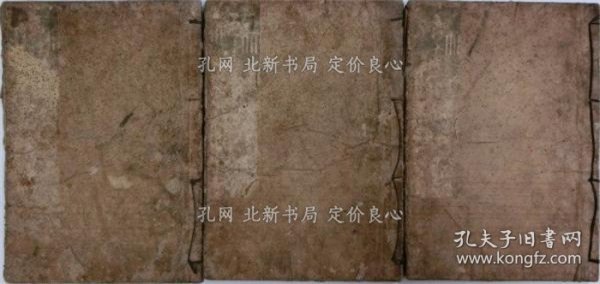 孔网 北新书局 定价良心
孔网 北新书局 定价良心
孔夫子旧書网
www.kongfz.com